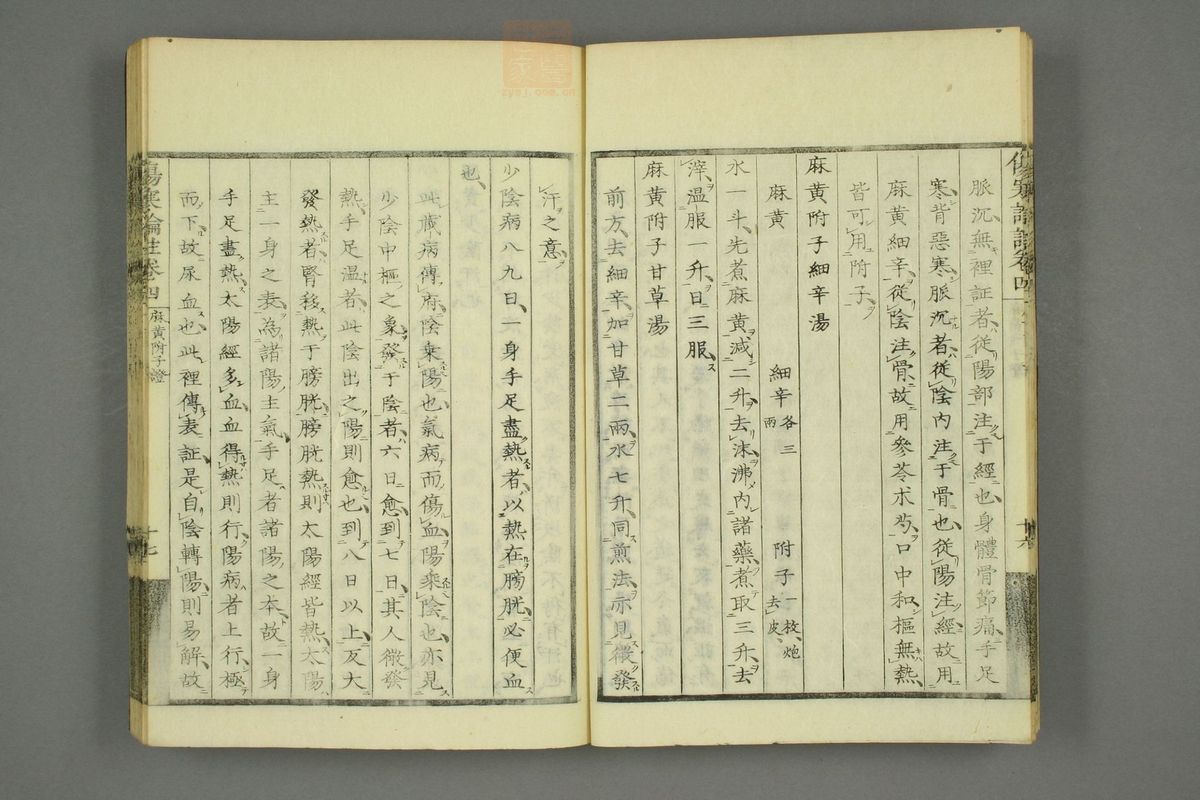 脈沉、無裡証者、從陽部注于經也、身體骨節痛、手足
寒、背惡寒、脈沉者、從陰內注于骨也、從陽注經、故用
麻黃細辛、從陰注骨、故用參苓朮芍、口中和、樞無熱、
皆可用附子、
麻黃附子細辛湯
麻黃 細辛各三兩 附子一枚、炮去皮、
水一斗、先煮麻黃、減二升、去沫沸、內諸藥、煮取三升、去
滓、溫服一升、日三服、
麻黃附子甘草湯
前方、去細辛、加甘草二兩、水七升、同煎法、亦見微發
十六
汗之意、
少陰病八九日、一身手足盡熱者、以熱在膀胱、必便血
也、
此臟病傳府、陰乘陽也、氣病而傷血、陽乘陰也、亦見
少陰中樞之象、發于陰者、六日愈、到七日、其人微發
熱、手足溫者、此陰出之陽則愈也、到八日以上、反大
發熱者、腎移熱于膀胱、膀胱熱則太陽經皆熱、太陽
主一身之表、為諸陽主氣、手足者諸陽之本、故一身
手足盡熱、太陽經多血、血得熱則行、陽病者上行、極
而下、故尿血也、此裡傳表証、是自陰轉陽則易解、故
傷寒論註卷四
麻黃附子證
十七
zysj.com.cn